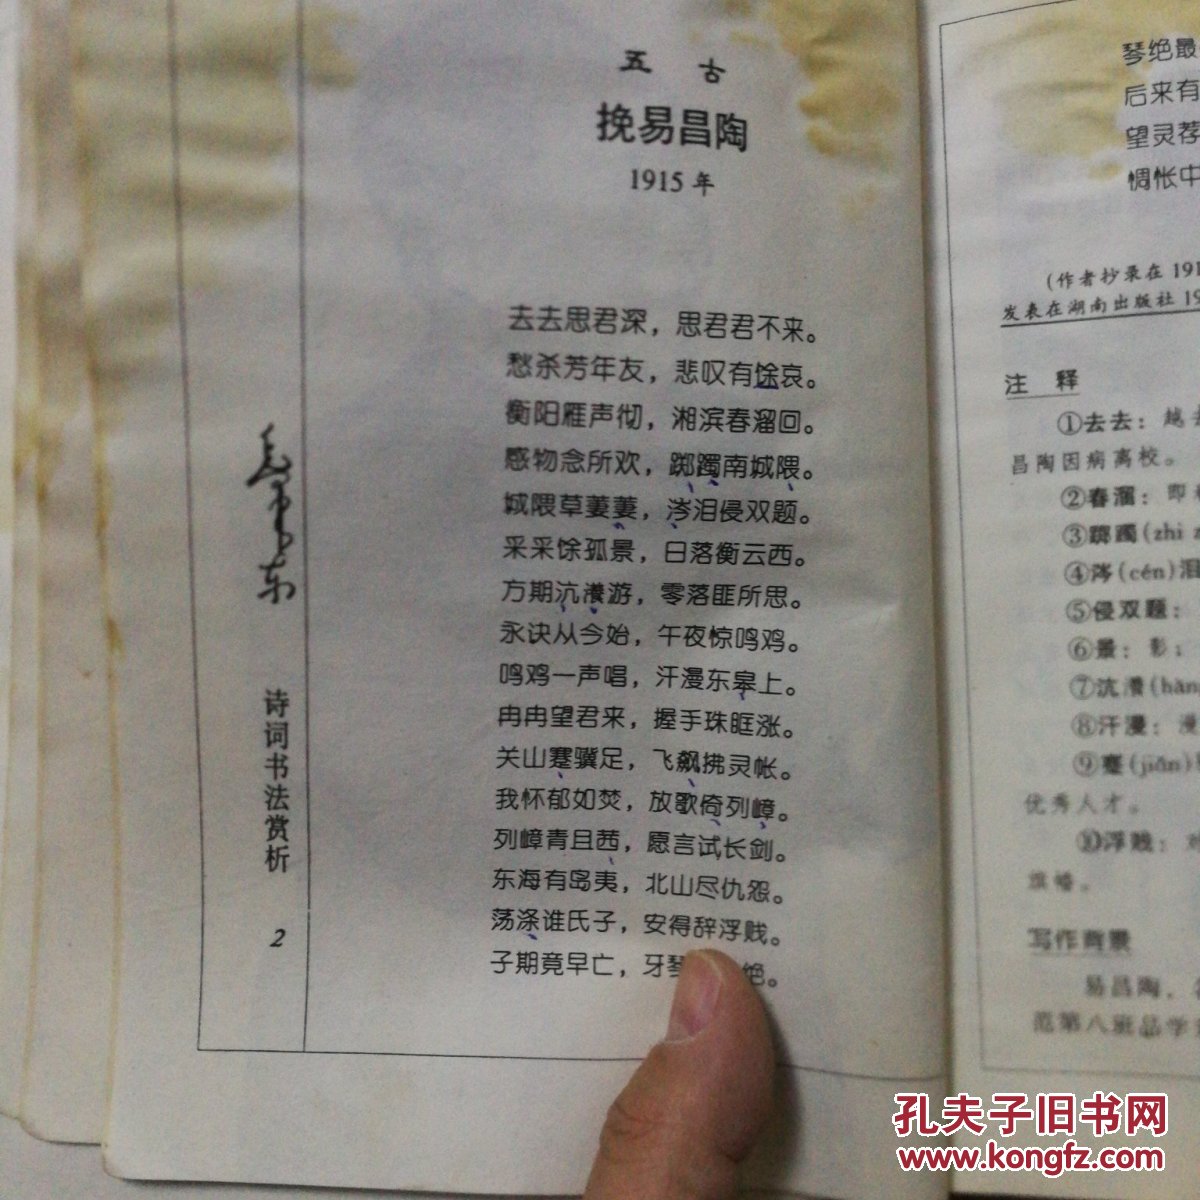 五 古
挽易昌陶
1915 年
去去思君深，思君君不来。
愁杀芳年友，悲叹有馀哀。
衡阳雁声彻，湘滨春溜回。
感物念所欢，踯躅南城隈。
城隈草萋萋，涔泪侵双题。
采采馀孤景，日落衡云西。
方期沆瀁游，零落匪所思。
永诀从今始，午夜惊鸣鸡。
鸣鸡一声唱，汗漫东皋上。
冉冉望君来，握手珠眶涨。
关山蹇骥足，飞飙拂灵帐。
我怀郁如焚，放歌倚列嶂。
列嶂青且茜，愿言试长剑。
东海有岛夷，北山尽仇怨。
荡涤谁氏子，安得辞浮贱。
子期竟早亡，牙琴 绝。
毛泽东
诗词书法赏析
2
琴绝最
后来有
望灵荐
惆怅中
(作者抄录在 191
发表在湖南出版社 19
注 释
①去去：越
昌陶因病离校。
②春溜：即
③踯躅(zhí
④涔(cén)泪
⑤侵双题：
⑥景：影；
⑦沆瀁(hàng
⑧汗漫：漫
⑨蹇(jiǎn)
优秀人才。
⑩浮贱：
写作背景
易昌陶，
范第八班品学
孔夫子旧书网
www.kongfz.com